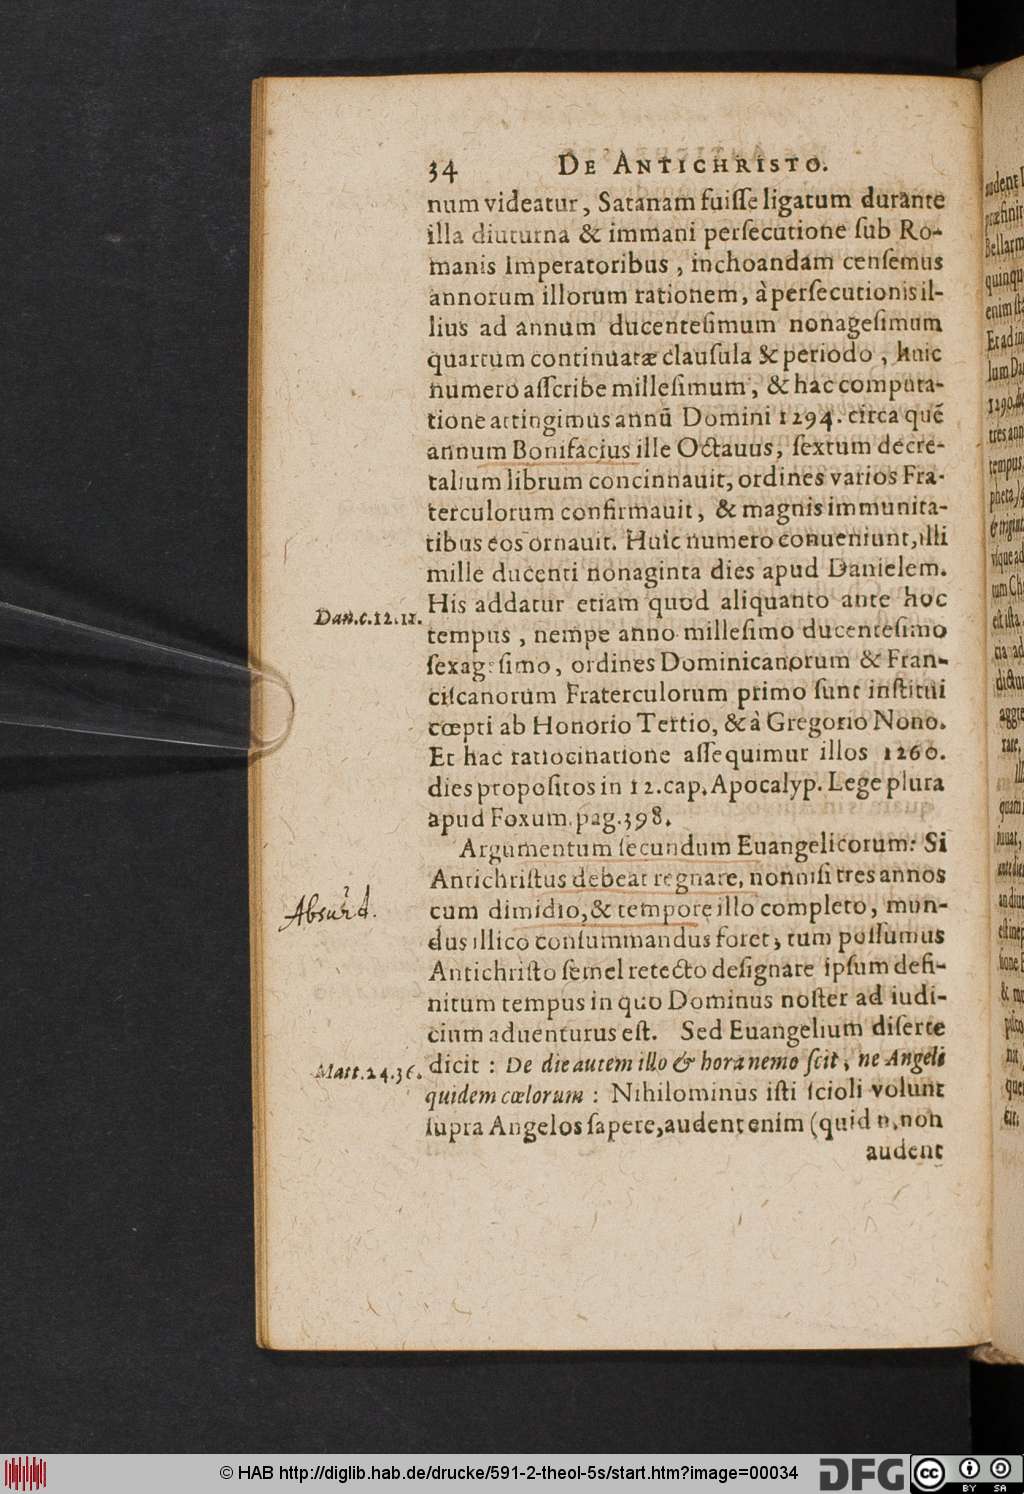 34 DE ANTICHRISTO.
num videatur, Satanam fuiſſe ligatum durante
illa diuturna & immani perſecutione ſub Ro-
manis Imperatoribus, inchoandam cenſemus
annorum illorum rationem, à perſecutionis il-
lius ad annum ducenteſimum nonageſimum
quartum continuatæ clauſula & periodo, huic
numero aſſcribe milleſimum, & hac computa-
tione attingimus annū Domini 1294. circa quē
annum Bonifacius ille Octauus, ſextum decre-
talium librum concinnauit, ordines varios Fra-
terculorum confirmauit, & magnis immunita-
tibus eos ornauit. Huic numero conueniunt, illi
mille ducenti nonaginta dies apud Danielem.
Dan.c.12.11.
His addatur etiam quod aliquanto ante hoc
tempus, nempe anno milleſimo ducenteſimo
ſexageſimo, ordines Dominicanorum & Fran-
ciſcanorum Fraterculorum primo ſunt inſtitui
cœpti ab Honorio Tertio, & à Gregorio Nono.
Et hac ratiocinatione aſſequimur illos 1260.
dies propoſitos in 12.cap. Apocalyp. Lege plura
apud Foxum. pag. 398.
Argumentum ſecundum Euangelicorum: Si
Antichriſtus debeat regnare, nonniſi tres annos
Absurd.
cum dimidio, & tempore illo completo, mun-
dus illico conſummandus foret; tum poſſumus
Antichriſto ſemel retecto deſignare ipſum defi-
nitum tempus in quo Dominus noſter ad iudi-
cium aduenturus eſt. Sed Euangelium diſerte
Matt.24.36.
dicit : De die autem illo & hora nemo ſcit, ne Angeli
quidem cœlorum : Nihilominus iſti ſcioli volunt
ſupra Angelos ſapere, audent enim (quid n, non
audent
© HAB http://diglib.hab.de/drucke/591-2-theol-5s/start.htm?image=00034
DFG
cc BY SA